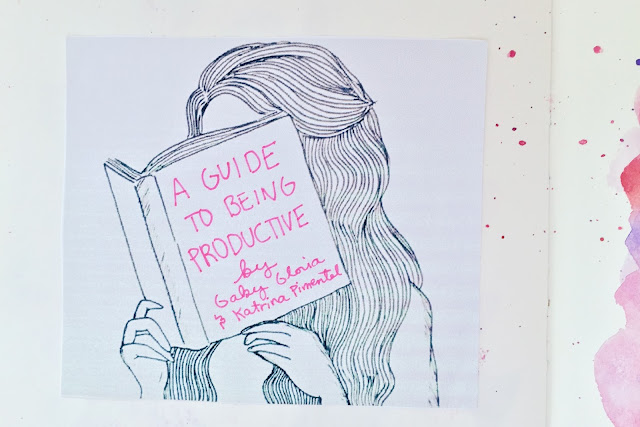 A GUIDE
TO BEING
PRODUCTIVE
by
Gaby Gloria
& Katrina Pimentel